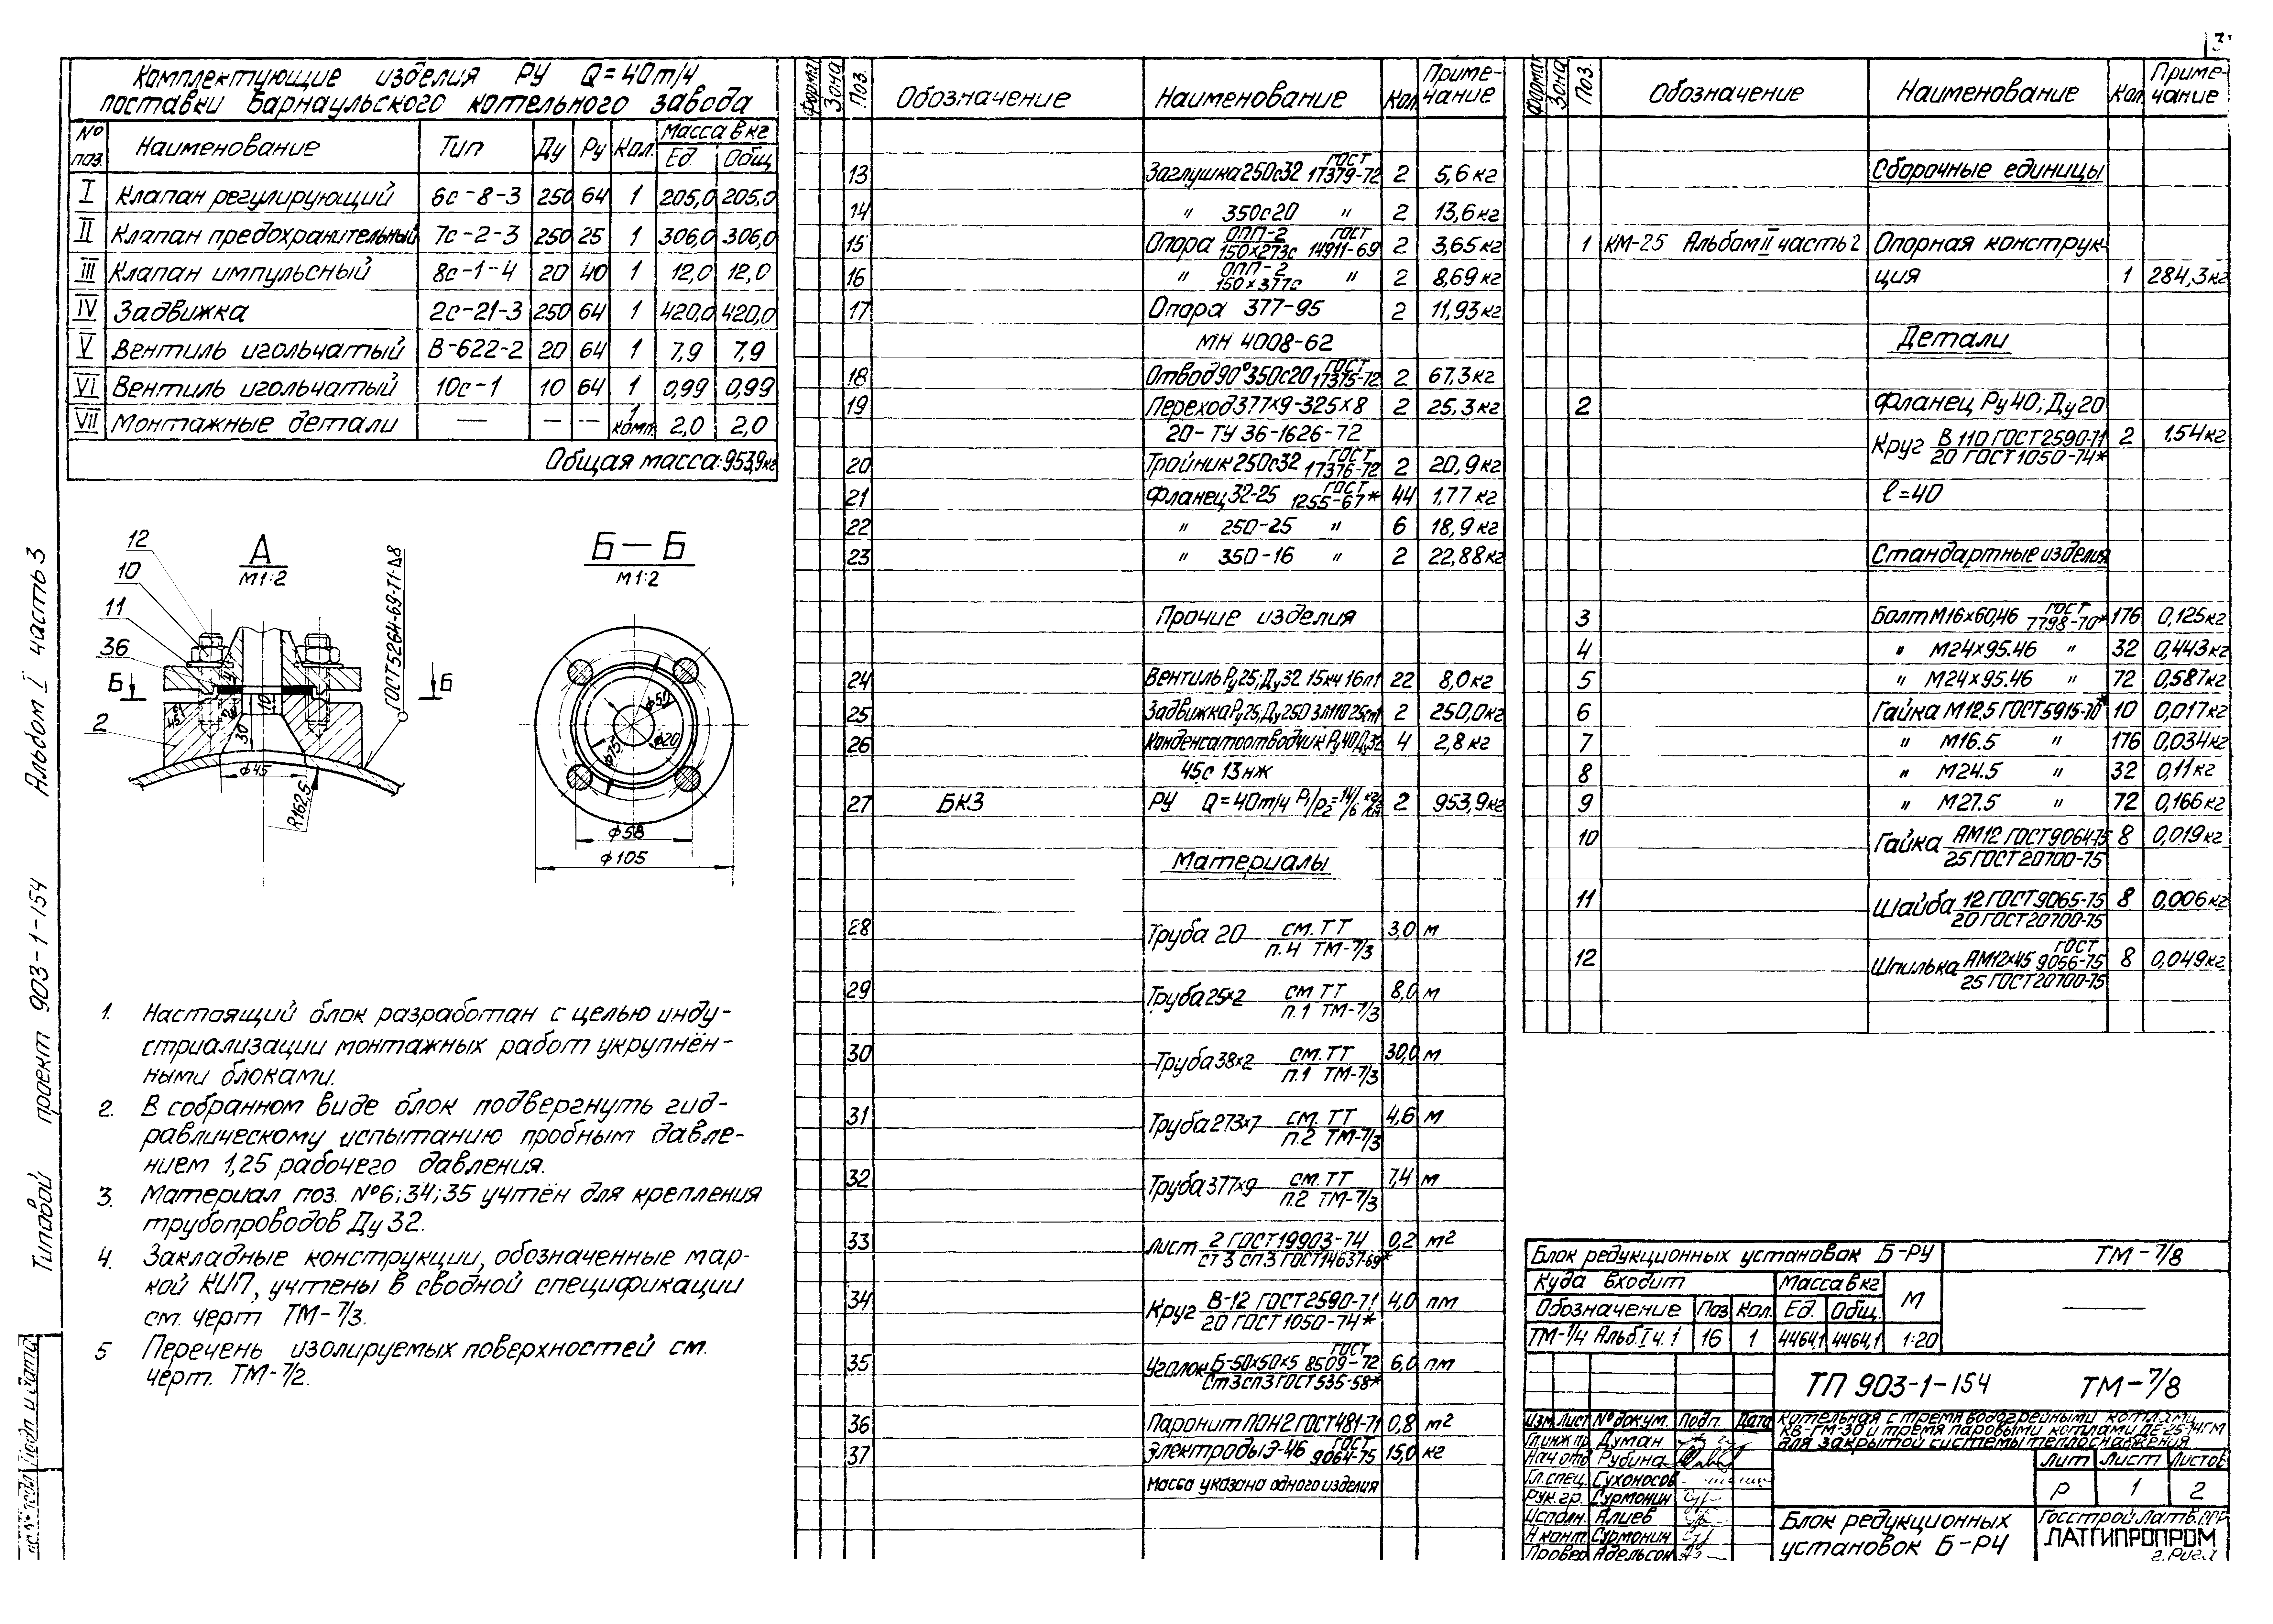 3
Комплектующие изделия РУ Q=40т/ч
поставки Барнаульского котельного завода
№ поз. Наименование Тип Ду Ру Кол. Масса в кг Ед. Общ.
I Клапан регулирующий 6с-8-3 250 64 1 205,0 205,0
II Клапан предохранительный 7с-2-3 250 25 1 306,0 306,0
III Клапан импульсный 8с-1-4 20 40 1 12,0 12,0
IV Задвижка 2с-21-3 250 64 1 420,0 420,0
V Вентиль игольчатый В-622-2 20 64 1 7,9 7,9
VI Вентиль игольчатый 10с-1 10 64 1 0,99 0,99
VII Монтажные детали — — — 1 комп. 2,0 2,0
Общая масса: 953,9кг
А
М1:2
12
10
11
36
Б Б
2
30
10
ф45
R162,5
ГОСТ 5264-69-Т1-Δ8
Б—Б
М1:2
ф50
ф20
ф75
ф58
ф105
1. Настоящий блок разработан с целью инду-
стриализации монтажных работ укрупнён-
ными блоками.
2. В собранном виде блок подвергнуть гид-
равлическому испытанию пробным давле-
нием 1,25 рабочего давления.
3. Материал поз. №6;34;35 учтён для крепления
трубопроводов Ду 32.
4. Закладные конструкции, обозначенные мар-
кой КИП, учтены в сводной спецификации
см. черт ТМ-7/3.
5 Перечень изолируемых поверхностей см.
черт. ТМ-7/2.
Типовой проект 903-1-154 Альбом I часть 3
Подп и дата
Формат Зона Поз. Обозначение Наименование Кол. Приме-
чание
13 Заглушка 250с32 ГОСТ 17379-72 2 5,6 кг
14 " 350с20 " 2 13,6 кг
15 Опора ОПП-2 150×273с ГОСТ 14911-69 2 3,65 кг
16 " ОПП-2 150×377с " 2 8,69 кг
17 Опора 377-95 2 11,93 кг
МН 4008-62
18 Отвод 90° 350с20 ГОСТ 17375-72 2 67,3 кг
19 Переход 377×9-325×8 2 25,3 кг
20-ТУ 36-1626-72
20 Тройник 250с32 ГОСТ 17376-72 2 20,9 кг
21 Фланец 32-25 ГОСТ 1255-67* 44 1,77 кг
22 " 250-25 " 6 18,9 кг
23 " 350-16 " 2 22,88 кг
Прочие изделия
24 Вентиль Ру25; Ду 32 15кч 16п1 22 8,0 кг
25 Задвижка Ру25; Ду 250 2 250,0 кг
26 Конденсатоотводчик Ру40 Ду32 4 2,8 кг
45с 13нж
27 БКЗ РУ Q=40т/ч Р1/Р2=14/6 2 953,9кг
Материалы
28 Труба 20 см. ТТ п.4 ТМ-7/3 3,0 м
29 Труба 25×2 см ТТ п.1 ТМ-7/3 8,0 м
30 Труба 38×2 см. ТТ п.1 ТМ-7/3 30,0 м
31 Труба 273×7 см. ТТ п.2 ТМ-7/3 4,6 м
32 Труба 377×9 см. ТТ п.2 ТМ-7/3 7,4 м
33 Лист 2 ГОСТ 19903-74 ст 3 сп3 ГОСТ 14637-69* 0,2 м2
34 Круг В-12 ГОСТ 2590-71 20 ГОСТ 1050-74* 4,0 пм
35 Уголок Б-50×50×5 ГОСТ 8509-72 Ст3сп3 ГОСТ 535-58* 6,0 пм
36 Паронит ПОН2 ГОСТ 481-71 0,8 м2
37 Электроды Э-46 ГОСТ 9064-75 15,0 кг
Масса указана одного изделия
Формат Зона Поз. Обозначение Наименование Кол Приме-
чание
Сборочные единицы
1 КМ-25 Альбом II часть 2 Опорная конструк-
ция 1 284,3кг
Детали
2 Фланец Ру40; Ду20
Круг В 110 ГОСТ 2590-71 20 ГОСТ 1050-74* 2 1.54 кг
ℓ=40
Стандартные изделия
3 Болт М16×60,46 ГОСТ 7798-70* 176 0,125кг
4 " М24×95.46 " 32 0,443кг
5 " М24×95.46 " 72 0,587кг
6 Гайка М12,5 ГОСТ 5915-70* 10 0,017кг
7 " М16.5 " 176 0,034кг
8 " М24.5 " 32 0,11кг
9 " М27.5 " 72 0,166кг
10 Гайка АМ12 ГОСТ 9064-75 25 ГОСТ 20700-75 8 0,019кг
11 Шайба 12 ГОСТ 9065-75 20 ГОСТ 20700-75 8 0,006кг
12 Шпилька АМ12×45 ГОСТ 9066-75 25 ГОСТ 20700-75 8 0,049кг
Блок редукционных установок Б-РУ ТМ-7/8
Куда входит Масса в кг М ——
Обозначение Поз Кол. Ед. Общ.
ТМ-7/4 Альб. I ч. 1 16 1 4464,1 4464,1 1:20
ТП 903-1-154 ТМ-7/8
Изм. Лист № докум. Подп. Дата
Котельная с тремя водогрейными котлами
КВ-ГМ-30 и тремя паровыми котлами ДЕ-25-14ГМ
для закрытой системы теплоснабжения
Гл.инж.пр. Думан
Нач отд Рубина
Гл.спец. Сухоносов
Рук.гр. Сурмонин
Исполн. Алиев
Н конт. Сурмонин
Провер. Адельсон
Лит Лист Листов
Р 1 2
Блок редукционных
установок Б-РУ
Госстрой Латв.ССР
ЛАТГИПРОПРОМ
г. Рига